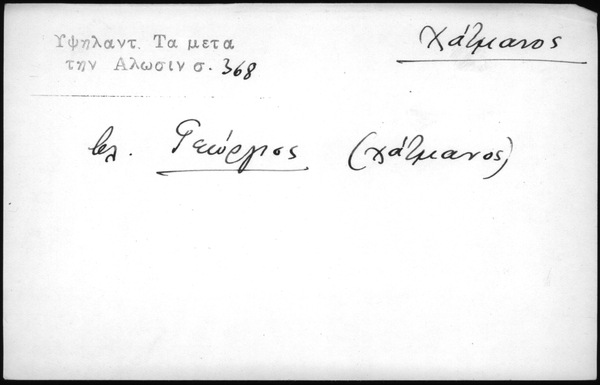 Υψηλαντ. Τα μετα
την Αλωσιν σ. 368
Χάτμανος
βλ. Γεώργιος (χάτμανος)